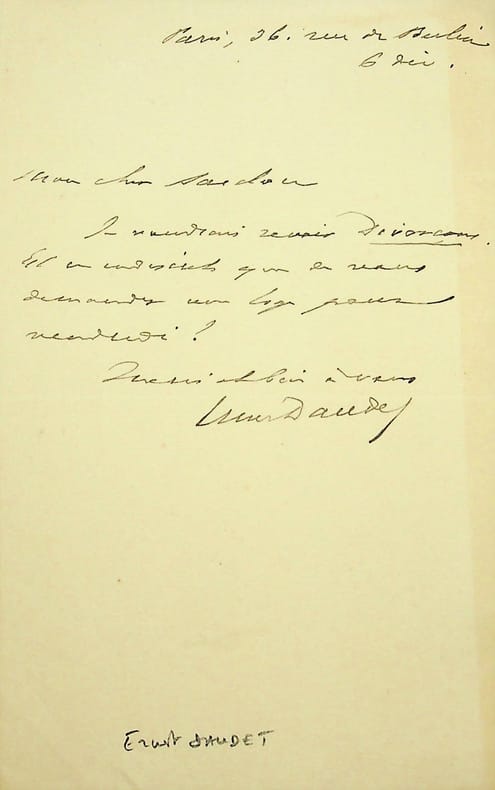 Paris, 36. rue de Berlin
6 déc.
Mon cher Sardou
Je voudrais revoir Divorçons.
Est-ce indiscret que de vous
demander une loge pour
vendredi ?
Merci et bien à vous
Ernest Daudet
Ernest DAUDET